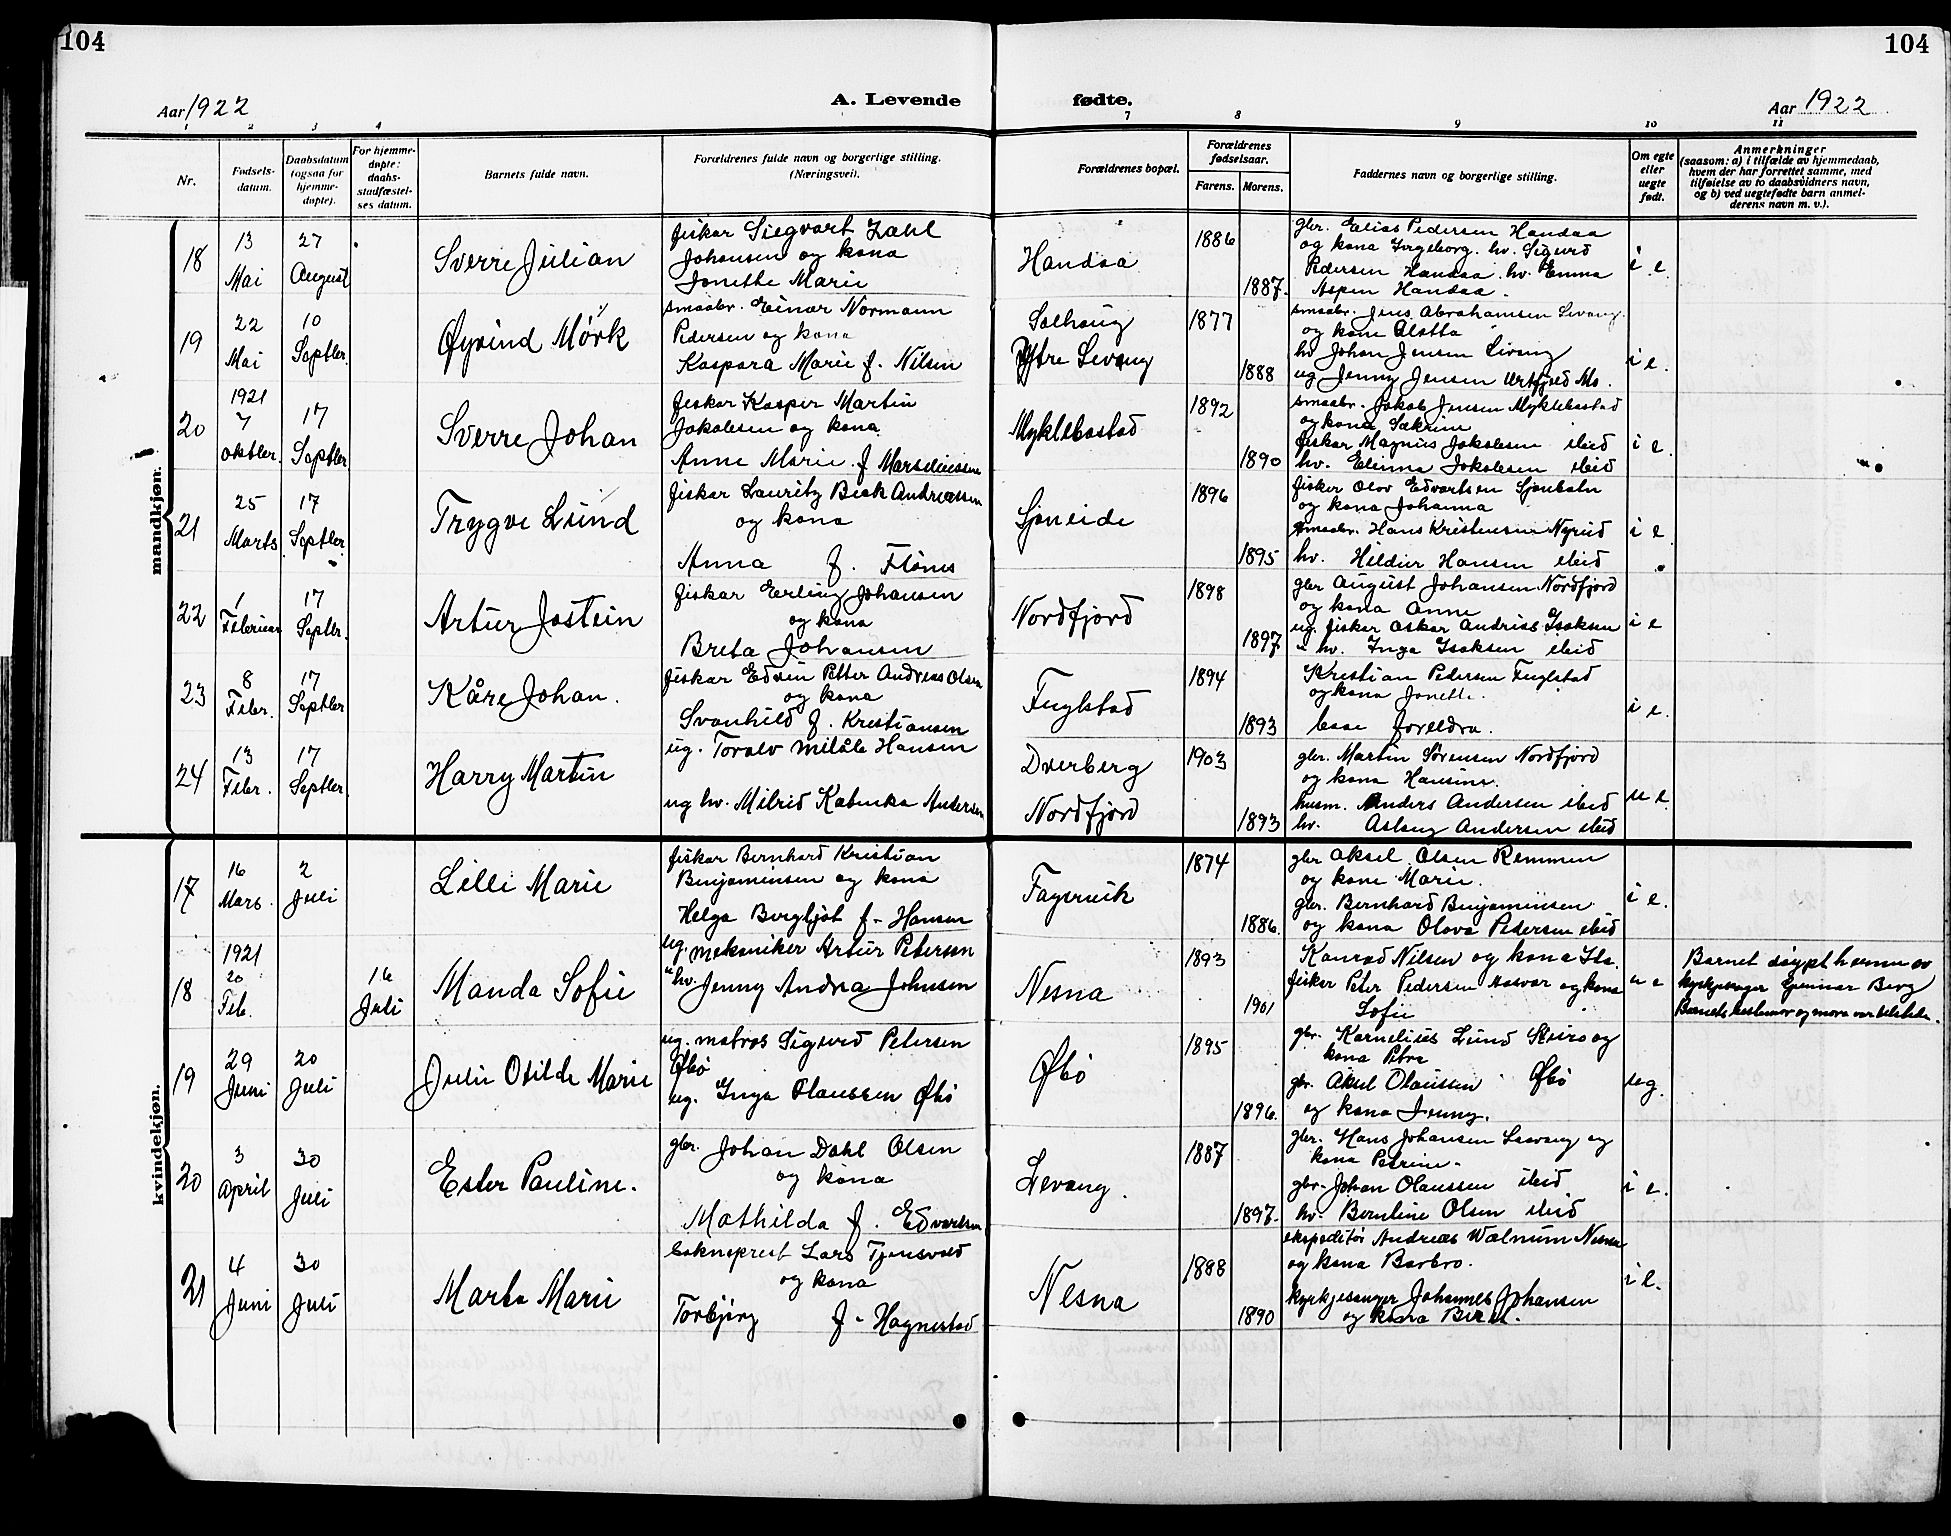 104
104
Aar 1922
A. Levende
fødte.
Aar 1922
1 2 3 4 7 8 9 10 11
Nr.
Fødsels-
datum.
Daabsdatum
(ogsaa for
hjemme-
døpte).
For hjemme-
døpte:
daabs-
stadfæstel-
ses datum.
Barnets fulde navn.
Forældrenes fulde navn og borgerlige stilling.
(Næringsvei).
Forældrenes bopæl.
Forældrenes
fødselsaar.
Farens. Morens.
Faddernes navn og borgerlige stilling.
Om egte
eller
uegte
født.
Anmerkninger
(saasom: a) i tilfælde av hjemmedaab,
hvem der har forrettet samme, med
tilføielse av to daabsvidners navn,
og b) ved uegtefødte barn anmel-
derens navn m. v.).
mandkjøn.
18
13
Mai
27
August
Sverre Julian
fiskar Siegvart Zahl
Johansen og kona
Jonette Marie
Handaa
1886
1887.
gbr. Elias Pedersen Handaa
og kona Ingeborg. hv. Sigurd
Pedersen Handaa. hv. Emma
Aspen Handaa.
i e.
19
22
Mai
10
Septbr.
Øyvind Mörk
smaabr. Einar Normann
Pedersen og kona
Kaspara Marie f. Nilsen
Solhaug
Ytre Levang
1877
1888
smaabr. Jens Abrahamsen Levang.
og kone
hv Johan Jensen Levang
ug Jenny Jensen Urtfjeld Mo.
i e.
20
1921
7
oktbr.
17
Septbr
Sverre Johan
fiskar Kasper Martin
Jakobsen og kona
Anne Marie f Marseliussen
Myklebostad
1892
1890
smaabr. Jakob Jensen Myklebostad
og kona
fiskar Magnus Jakobsen ibid
hv. Elinna Jakobsen ibid
i e.
21
25
Marts
17
Septbr.
Trygve Lund
fiskar Lauritz Beck Andreassen
og kona
Anna f. Flönes
Sjoneide
1896
1895
fisker Olov Edvartsen Sjonbotn
og kona Johanna
smaabr. Hans Kristensen Nyrud
hv. Hildur Hansen ibid
i e
22
1
Februar
17
Septbr.
Artur Jostein
fiskar Erling Johansen
og kona
Breta Johansen
Nordfjord
1898
1897
gbr August Johansen Nordfjord
og kona Anne
ug. fisker Oskar Andrias Isaksen
hv. Inga Isaksen ibid
i e
23
8
Febr.
17
Septbr
Kåre Johan.
fiskar Edvin Petter Andreas Olsen
og kona
Svanhild f. Kristiansen
Fuglstad
1894
1893
Kristian Pedersen Fuglstad
og kona Jonette.
baae foreldra.
i e.
24
13
Febr.
17
Septbr.
Harry Martin
ug. Toralv Hansen
ug hv. Milrid Katinka Andersen
Dverberg
Nordfjord
1903
1893
gbr. Martin Sørensen Nordfjord
og kona Hansine.
husm. Anders Andersen ibid
hv. Aslaug Andersen ibid
u e.
kvindekjøn.
17
16
Mars.
2
Juli
Lilli Marie
fiskar Bernhard Kristian
Benjaminsen og kona
Helga Bergljot f. Hansen
Fagervik
1874
1886.
gbr Aksel Olsen Remmen
og kone Marie.
gbr. Bernhard Benjaminsen
og kona Olova Pedersen ibid
i e.
18
1921
20
Feb.
16
Juli
Manda Sofie
ug. mekaniker Artur Petersen
" hv. Jenny Andrea Johnsen
Nesna
1893
1901
Konrad Nilsen og kona Ida.
fisker Peter Pedersen Aasvær og kona
Sofie
u e
Barnet døypt heime av
kyrkjesager Gunnar Berg
Barnets bestemor og mora var tilstede.
19
29
Juni
20
Juli
Julie Otilde Marie
ug. matros Sigurd Petersen
Øbø
ug. Inga Olaussen Øbø
Øbø
1895
1896.
gbr. Kornelius Lund Skeiro og
kona Petra
gbr. Aksel Olaussen Øbø
og kona Jenny.
ug.
20
3
April
30
Juli
Ester Pauline.
gbr. Johan Dahl Olsen
og kona
Mathilda f. Edvardsen
Levang.
1887
1897.
gbr. Hans Johansen Levang og
kona Petrine.
gbr. Johan Olaussen ibid
hv. Berntine Olsen ibid
i e.
21
4
Juni
30
Juli
Marta Marie
Sokneprest Lars Tjensvold
og kona
Torbjørg f. Hognestad
Nesna
1888
1890
ekspeditør Andreas Walnum Nesna
og kona Barbro.
kyrkjesonger Johannes Johansen
og kona Beret.
i e.